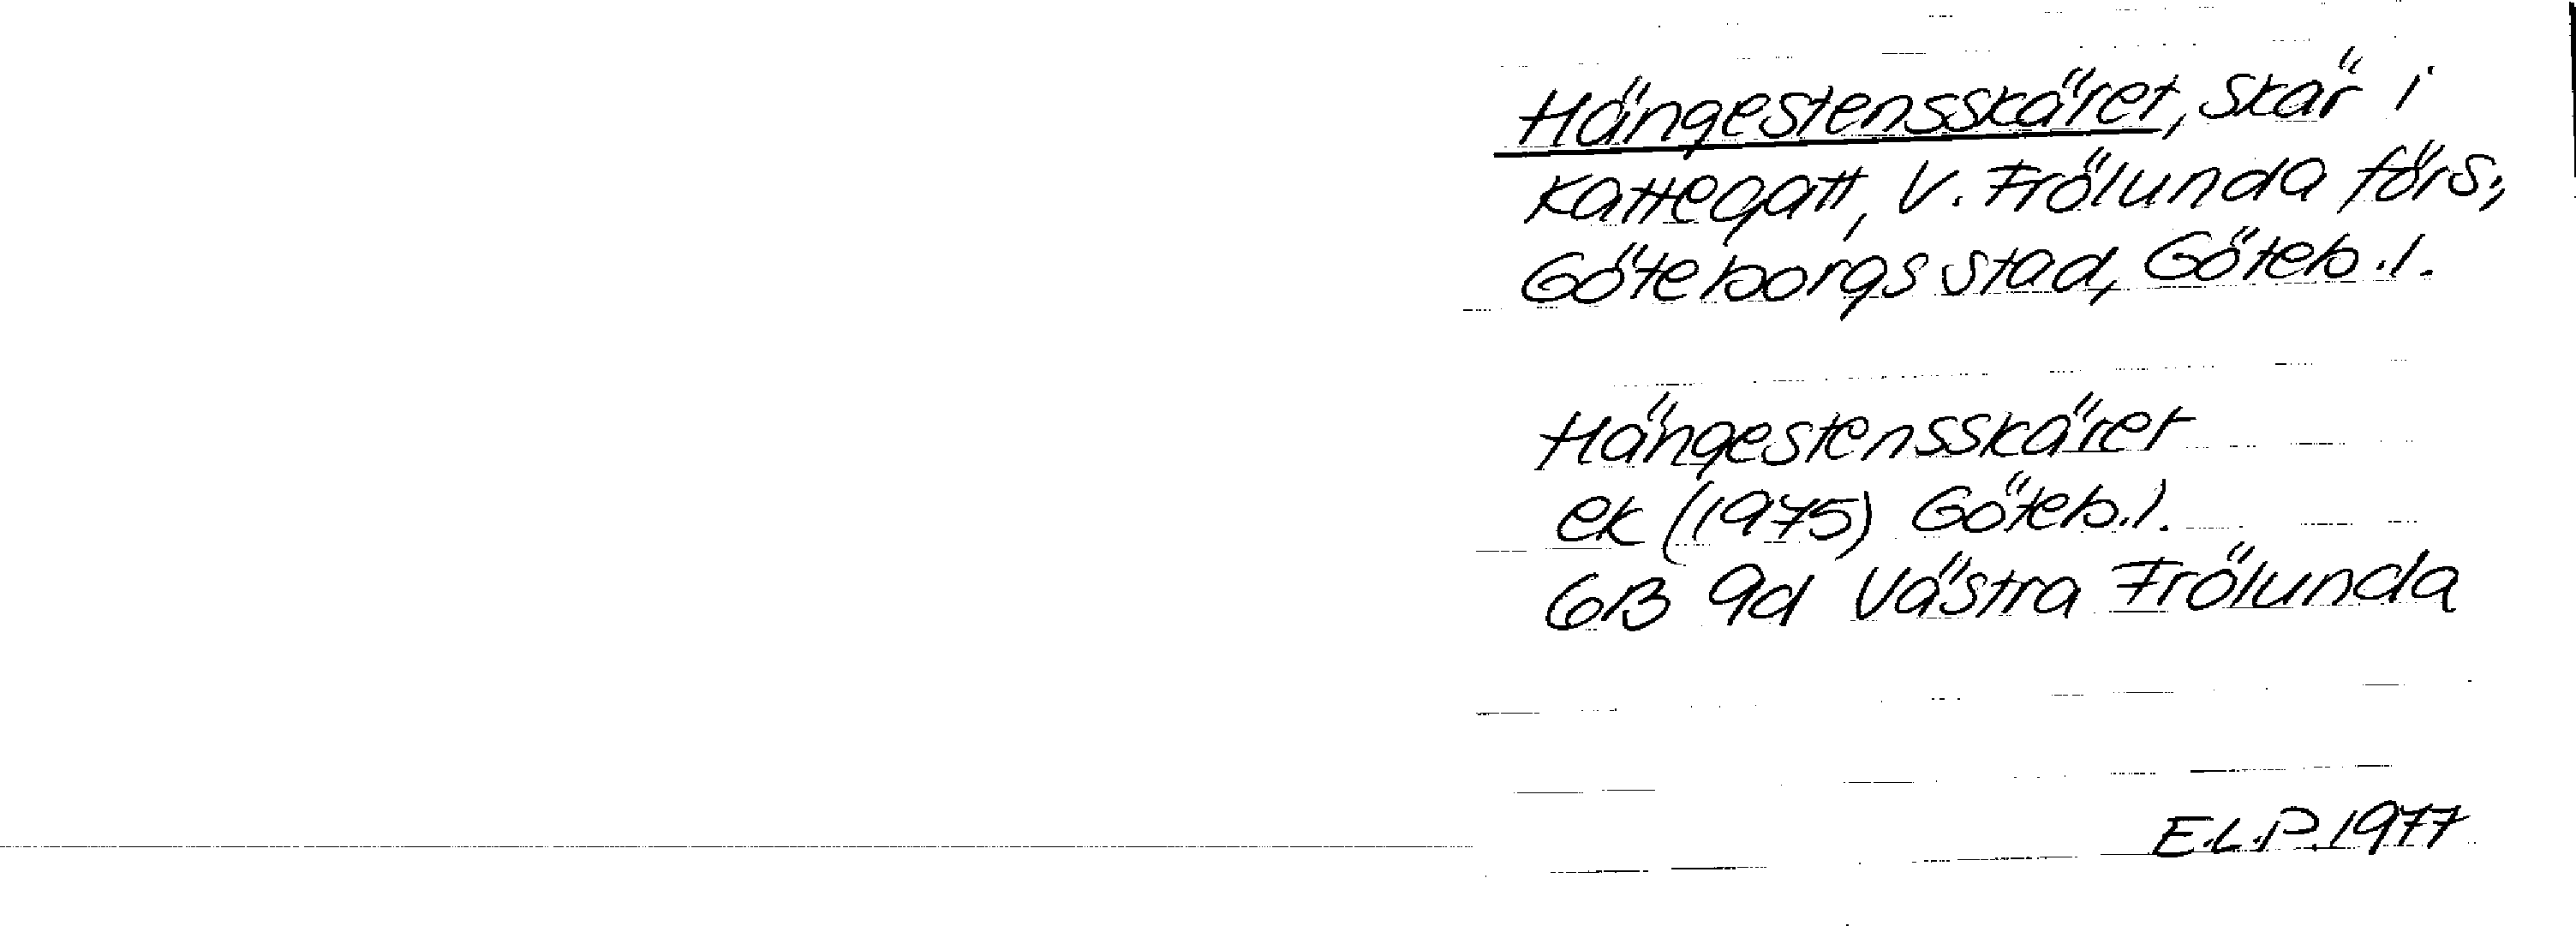 Hängestensskäret, skär i
Kattegatt, V. Frölunda förs.,
Göteborgs stad, Göteb.l.
Hängestensskäret
ek (1975) Göteb.l.
6B 9d Västra Frölunda
E.L.P. 1977